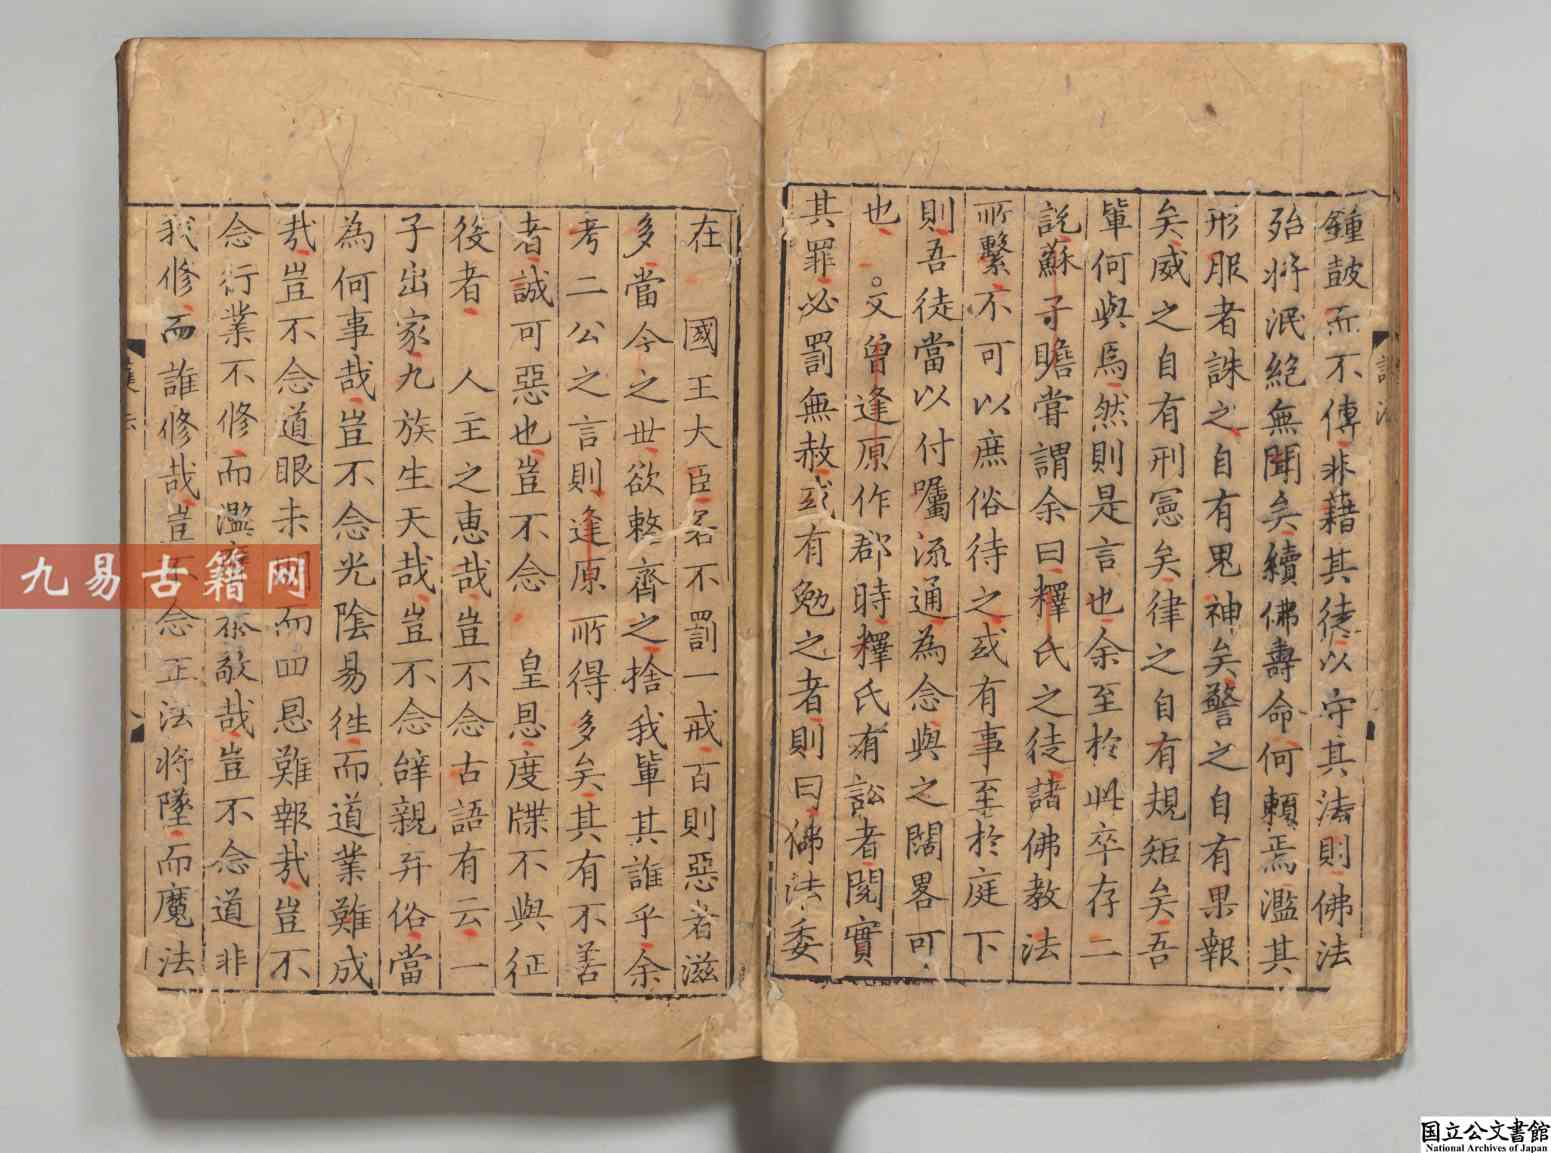 鍾鼓而不傳非藉其徒以守其法則佛法
殆將泯絕無聞矣續佛壽命何賴焉濫其
形服者誅之自有鬼神矣警之自有果報
矣威之自有刑憲矣律之自有規矩矣吾
輩何與焉然則是言也余至於此卒存二
說蘇子瞻甞謂余曰釋氏之徒諸佛教法
所繫不可以庶俗待之或有事至於庭下
則吾徒當以付囑流通為念與之闊畧可
也。又曾逢原作郡時釋氏有訟者閱實
其罪必罰無赦或有勉之者則曰佛法委
在 國王大臣若不罰一戒百則惡者滋
多當今之世欲整齊之捨我輩其誰乎余
考二公之言則逢原所得多矣其有不善
者誠可惡也豈不念 皇恩度牒不與征
役者 人主之惠哉豈不念古語有云一
子出家九族生天哉豈不念辭親弃俗當
為何事哉豈不念光陰易徃而道業難成
哉豈不念道眼未 而四恩難報哉豈不
念行業不修而濫 恭敬哉豈不念道非
我修而誰修哉豈 念正法將墜而魔法
九易古籍网
国立公文書館
National Archives of Japan